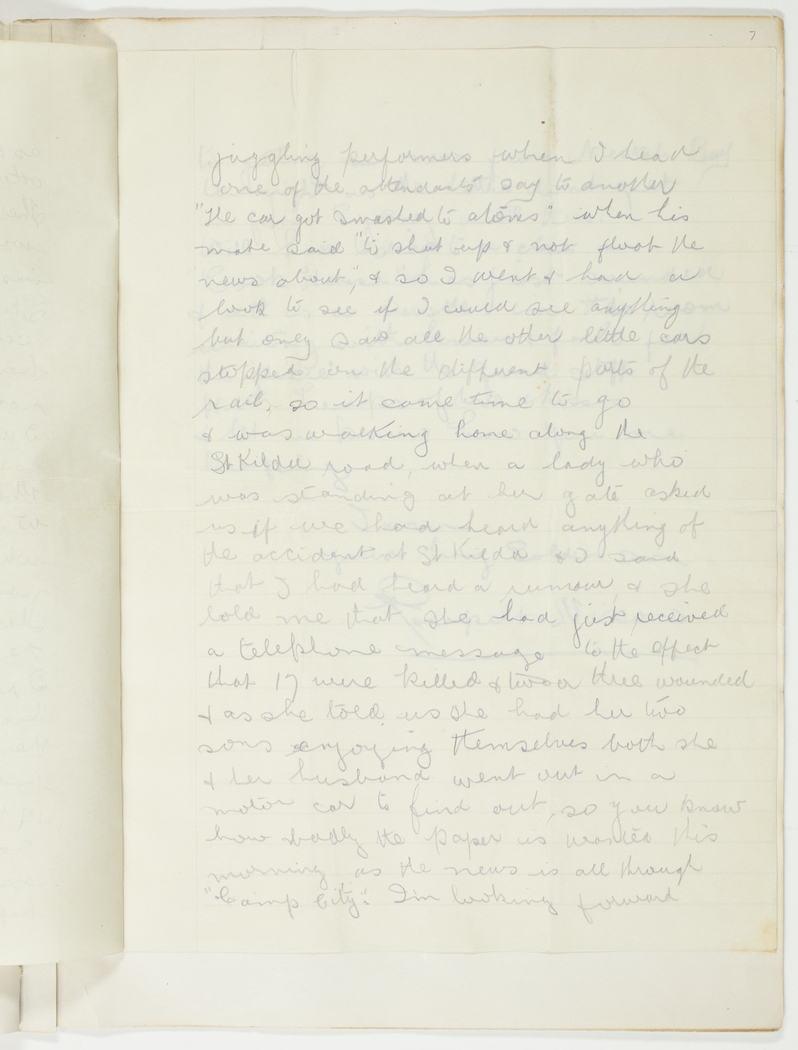 7
juggling performers when I head
one of the attendants say to another
"He car got smashed to atoms" when his
mate said "to shut up & not float the
news about," & so I went & had a
look to see if I could see anything
but only saw all the other little cars
stopped in the different parts of the
rail, so it came time to go
& was walking home along the
St Kilda road, when a lady who
was standing at her gate asked
us if we had heard anything of
the accident at St Kilda & I said
that I had heard a rumour, & she
told me that she had just received
a telephone message to the effect
that 17 were killed & two or three wounded
& as she told us she had her two
sons enjoying themselves both she
& her husband went out in a
motor car to find out, so you know
how badly the paper is wanted this
morning as the news is all through
"Camp City". I'm looking forward